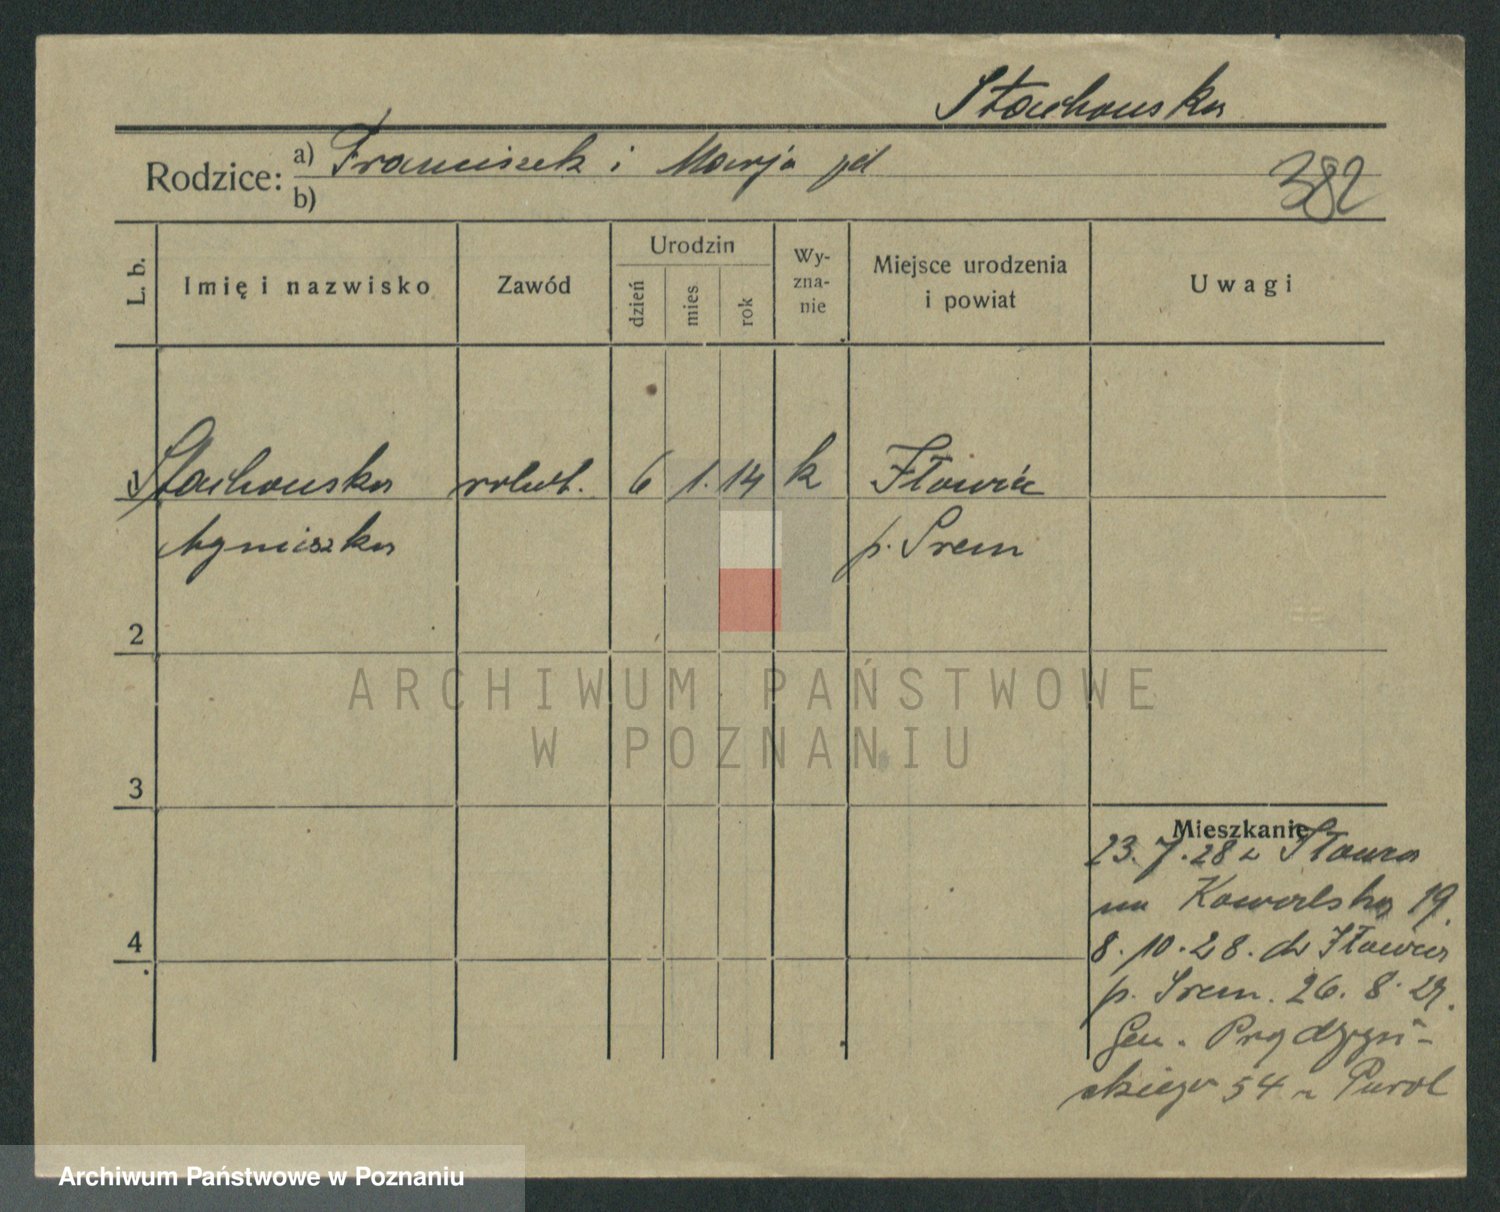 Stachowska
Rodzice: a) Franciszek i Marja pd
b)
382
L. b.
Imię i nazwisko
Zawód
Urodzin
dzień
mies
rok
Wy-
zna-
nie
Miejsce urodzenia
i powiat
Uwagi
1 Stachowska robot. 6 1. 14 k Iłowiec
Agnieszka p. Śrem
2
ARCHIWUM PAŃSTWOWE
W POZNANIU
3
Mieszkanie
23. 7. 28 z
na Kowalska 19.
4
8. 10. 28. do Iłowiec
p. Śrem. 26. 8. 29.
Gen. Prądzyń-
skiego 54
Archiwum Państwowe w Poznaniu